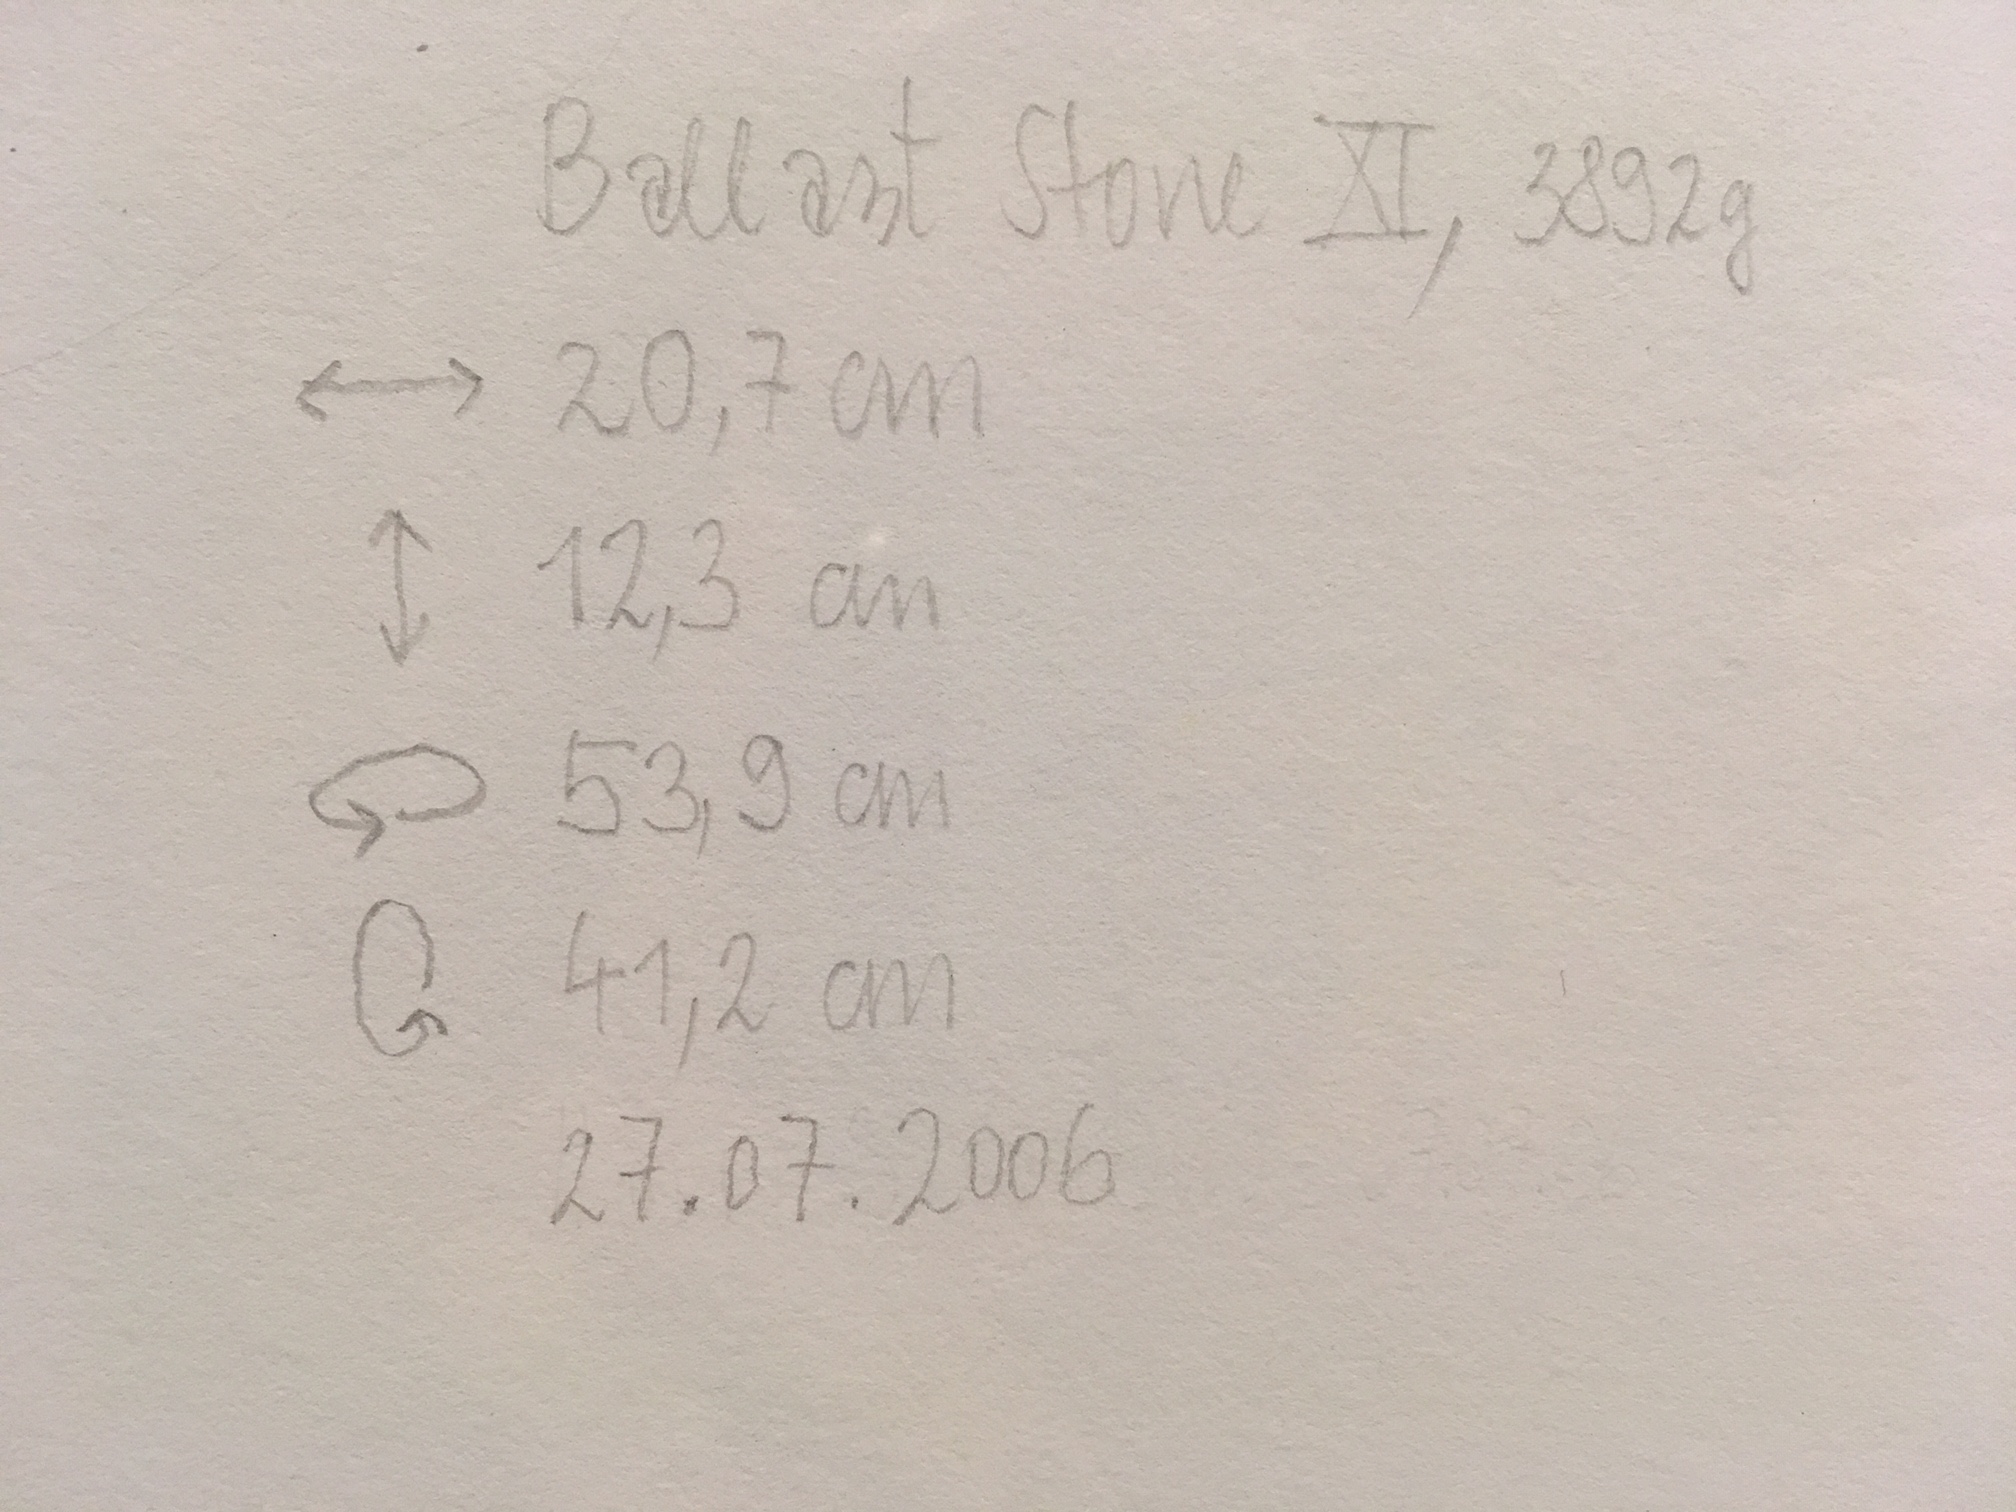 Ballast Stone XI, 3892g
↔ 20,7 cm
↕ 12,3 cm
53,9 cm
41,2 cm
27.07.2006